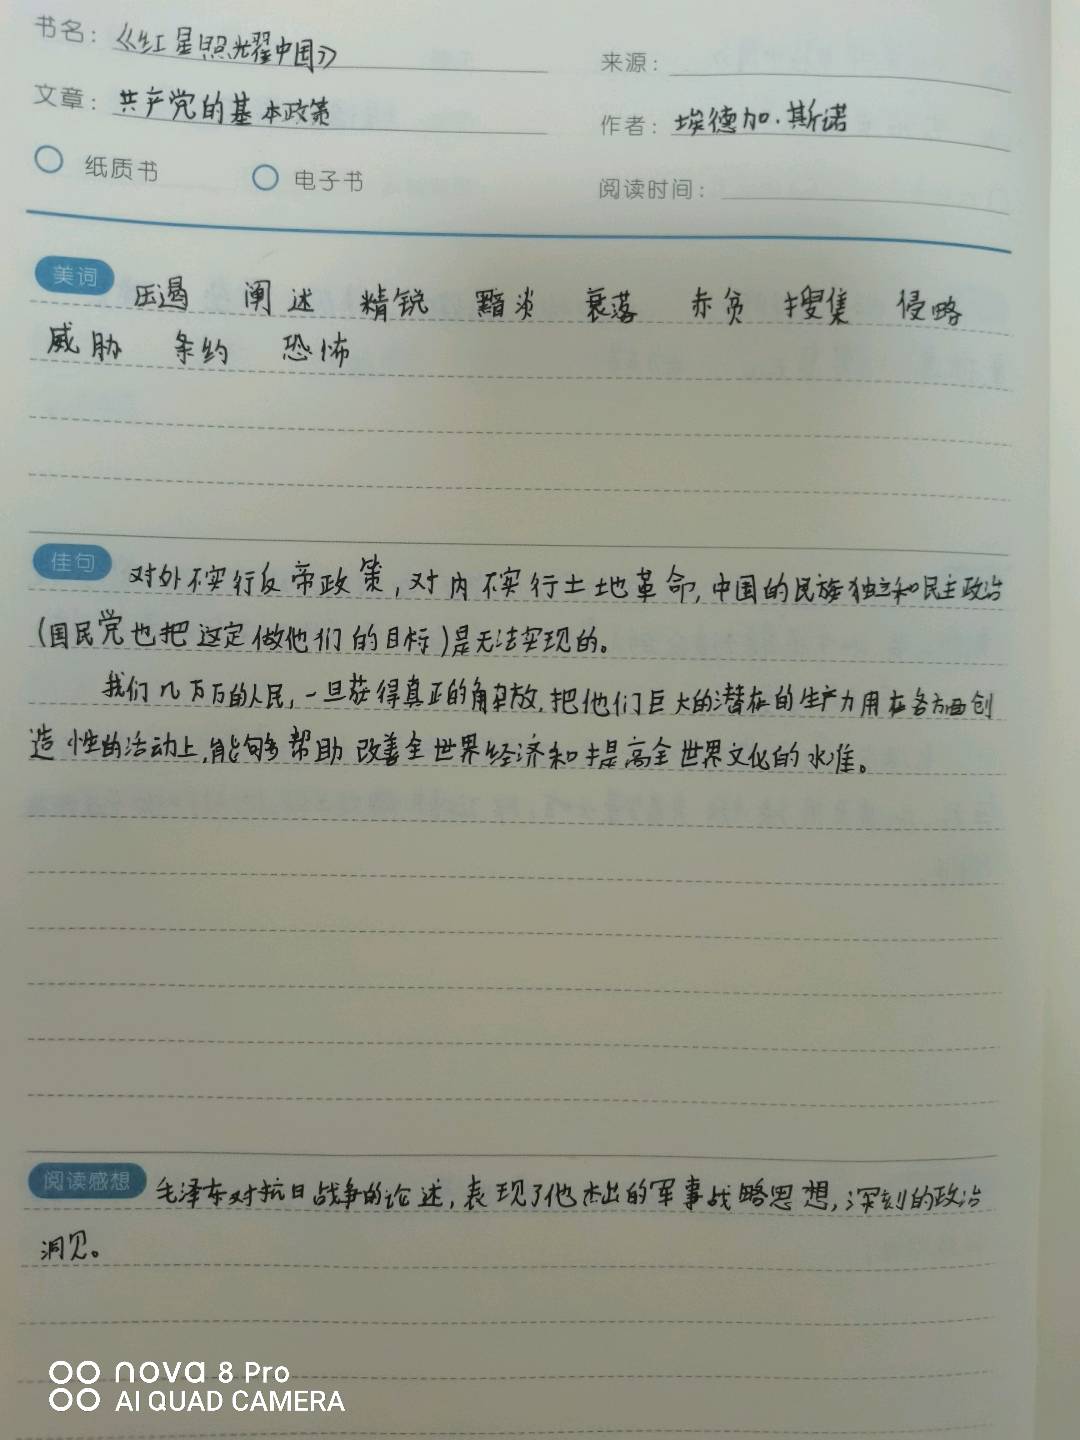 书名：《红星照耀中国》
来源：
文章：共产党的基本政策
作者：埃德加·斯诺
纸质书 电子书
阅读时间：
美词 压遏 阐述 精锐 黯淡 衰落 赤贫 搜集 侵略
威胁 条约 恐怖
佳句 对外不实行反帝政策，对内不实行土地革命，中国的民族独立和民主政治
（国民党也把这定做他们的目标）是无法实现的。
我们几万万的人民，一旦获得真正的解放，把他们巨大的潜在的生产力用在各方面创
造性的活动上，能够帮助改善全世界经济和提高全世界文化的水准。
阅读感想 毛泽东对抗日战争的论述，表现了他杰出的军事战略思想，深刻的政治
洞见。
nova 8 Pro
AI QUAD CAMERA